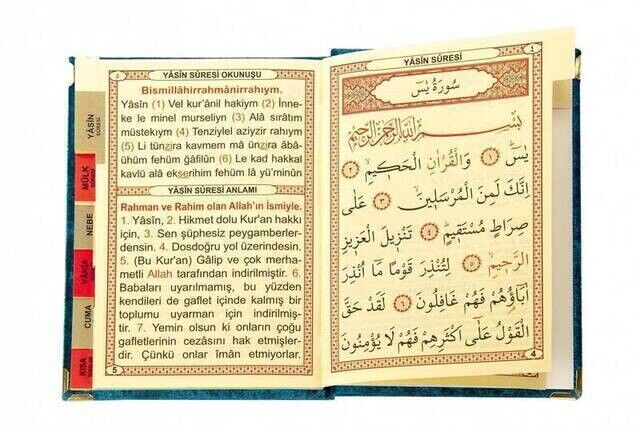 YÂSÎN SÛRESİ
٤
سُورَةُ يٰسٓ
بِسْمِ اللّٰهِ الرَّحْمٰنِ الرَّحِيمِ
يٰسٓ ﴿١﴾ وَالْقُرْاٰنِ الْحَكِيمِ ﴿٢﴾
اِنَّكَ لَمِنَ الْمُرْسَلِينَ ﴿٣﴾ عَلٰى
صِرَاطٍ مُسْتَقِيمٍ ﴿٤﴾ تَنْزِيلَ الْعَزِيزِ
الرَّحِيمِ ﴿٥﴾ لِتُنْذِرَ قَوْمًا مَٓا اُنْذِرَ
اٰبَٓاؤُهُمْ فَهُمْ غَافِلُونَ ﴿٦﴾ لَقَدْ حَقَّ
الْقَوْلُ عَلٰٓى اَكْثَرِهِمْ فَهُمْ لَا يُؤْمِنُونَ
4
٥
YÂSÎN SÛRESİ OKUNUŞU
Bismillâhirrahmânirrahıym.
Yâsîn (1) Vel kur'ânil hakiym (2) İnne-
ke le minel murseliyn (3) Alâ sırâtım
müstekıym (4) Tenziylel aziyzir rahıym
(5) Li tünzira kavmem mâ ünzira âbâ-
ühüm fehüm ğâfilûn (6) Le kad hakkal
kavlü alâ ekserihim fehüm lâ yü'minûn
YÂSÎN SÛRESİ ANLAMI
Rahman ve Rahim olan Allah'ın İsmiyle.
1. Yâsîn, 2. Hikmet dolu Kur'an hakkı
için, 3. Sen şüphesiz peygamberler-
densin. 4. Dosdoğru yol üzerindesin.
5. (Bu Kur'an) Gâlip ve çok merha-
metli Allah tarafından indirilmiştir. 6.
Babaları uyarılmamış, bu yüzden
kendileri de gaflet içinde kalmış bir
toplumu uyarman için indirilmiş-
tir. 7. Yemin olsun ki onların çoğu
gafletlerinin cezasını hak etmişler-
dir. Çünkü onlar îmân etmiyorlar.
5
YÂSÎN
SÛRESİ
MÜLK
NEBE
VÂKIA
CUMA
KISA